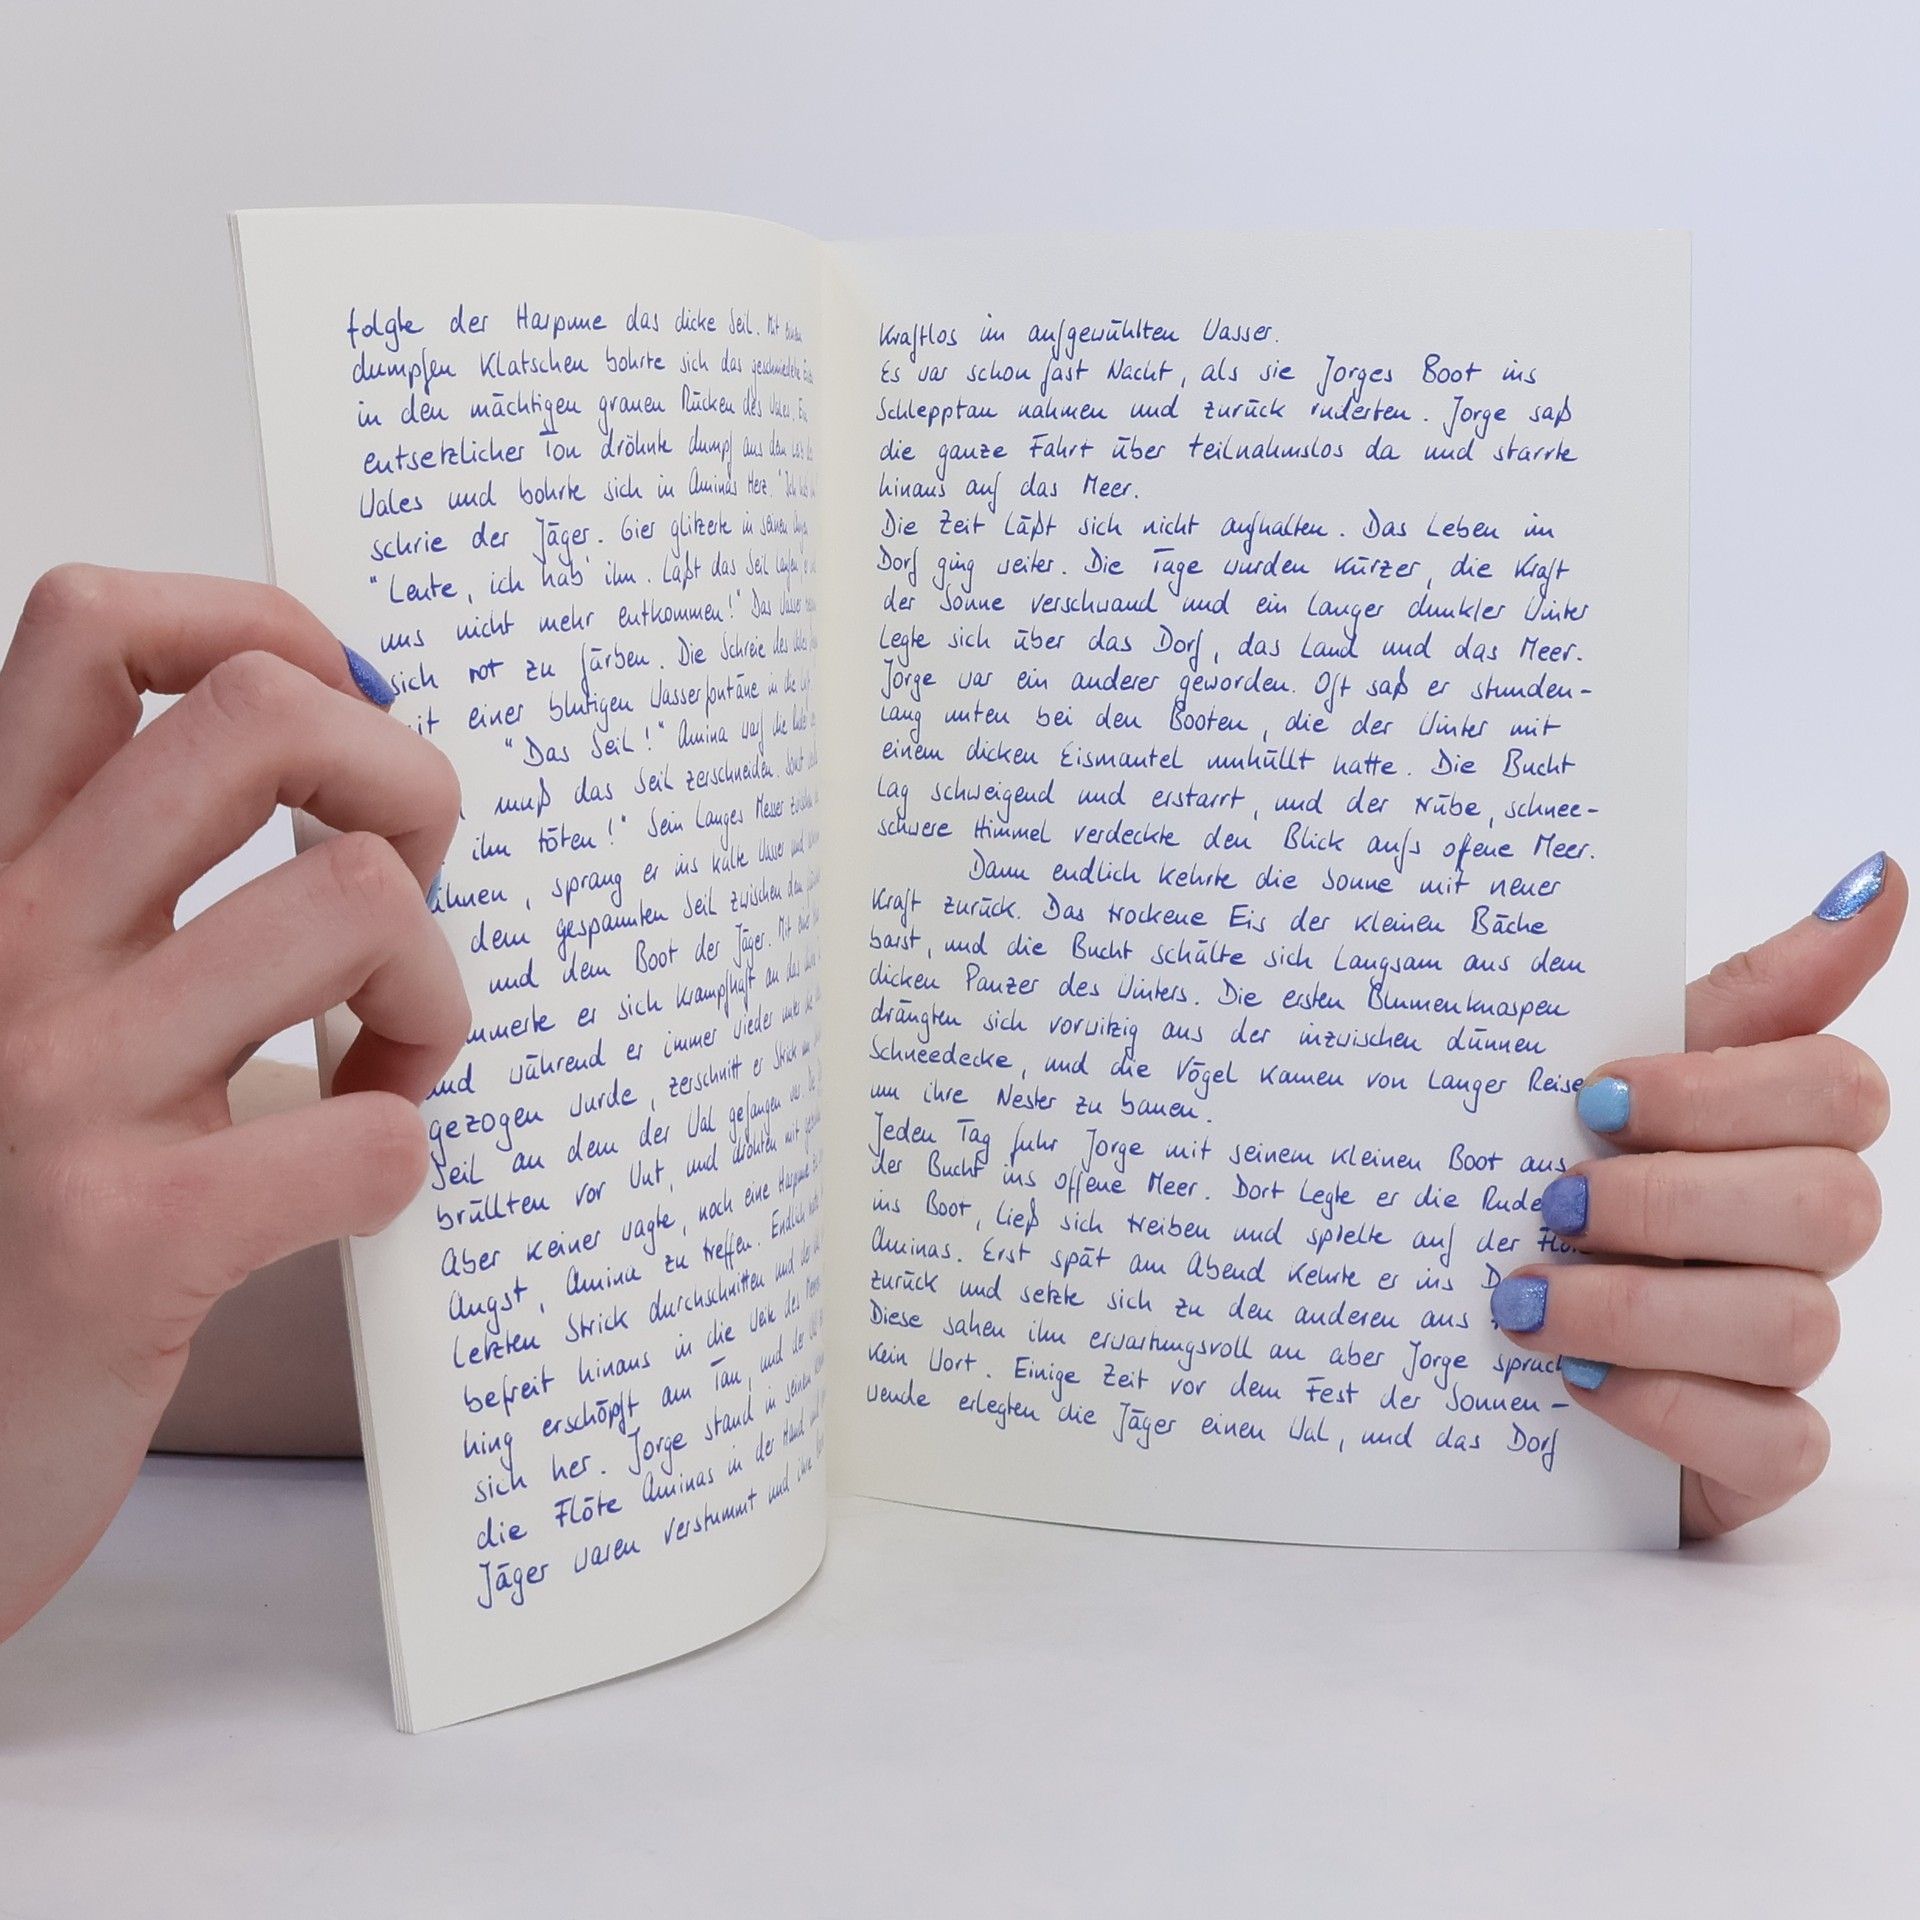 folgte der Harpune das dicke Seil. Mit
dumpfen Klatschen bohrte sich das geschmiedete
in den mächtigen grauen Rücken des Wales. Ein
entsetzlicher Ton dröhnte dumpf aus dem
Wales und bohrte sich in Aminas Herz. "Ich hab
schrie der Jäger. Gier glitzerte in seinen Augen
"Leute, ich hab' ihn. Laßt das Seil laufen
uns nicht mehr entkommen!" Das Wasser
sich rot zu färben. Die Schreie des Wales
mit einer blutigen Wasserfontäne in die Luft
"Das Seil!" Amina warf die
muß das Seil zerschneiden. Sonst
ihn töten!" Sein langes Messer zwischen
ähnen, sprang er ins kalte Wasser und
dem gespannten Seil zwischen dem
und dem Boot der Jäger. Mit einer
mmerte er sich krampfhaft an das
und während er immer wieder unter
gezogen wurde, zerschnitt er Strick um
Seil an dem der Wal gefangen war. Die
brüllten vor Wut, und drohten mit
Aber keiner wagte, noch eine Harpune
Angst, Amina zu treffen. Endlich
letzten Strick durchschnitten und der
befreit hinaus in die Weite des Meeres
hing erschöpft am Tau, und der
sich her. Jorge stand in seinem
die Flöte Aminas in der Hand und
Jäger waren verstummt und ihre
kraftlos im aufgewühlten Wasser.
Es war schon fast Nacht, als sie Jorges Boot ins
Schlepptau nahmen und zurück ruderten. Jorge saß
die ganze Fahrt über teilnahmslos da und starrte
hinaus auf das Meer.
Die Zeit läßt sich nicht aufhalten. Das Leben im
Dorf ging weiter. Die Tage wurden kürzer, die Kraft
der Sonne verschwand und ein langer dunkler Winter
legte sich über das Dorf, das Land und das Meer.
Jorge war ein anderer geworden. Oft saß er stunden-
lang unten bei den Booten, die der Winter mit
einem dicken Eismantel umhüllt hatte. Die Bucht
lag schweigend und erstarrt, und der trübe, schnee-
schwere Himmel verdeckte den Blick aufs offene Meer.
Dann endlich kehrte die Sonne mit neuer
Kraft zurück. Das trockene Eis der kleinen Bäche
barst, und die Bucht schälte sich langsam aus dem
dicken Panzer des Winters. Die ersten Blumenknospen
drängten sich vorwitzig aus der inzwischen dünnen
Schneedecke, und die Vögel kamen von langer Reise
um ihre Nester zu bauen.
Jeden Tag fuhr Jorge mit seinem kleinen Boot aus
der Bucht ins offene Meer. Dort legte er die Rude
ins Boot, ließ sich treiben und spielte auf der Flöte
Aminas. Erst spät am Abend kehrte er ins D
zurück und setzte sich zu den anderen ans
Diese sahen ihn erwartungsvoll an aber Jorge sprach
kein Wort. Einige Zeit vor dem Fest der Sonnen-
wende erlegten die Jäger einen Wal, und das Dorf